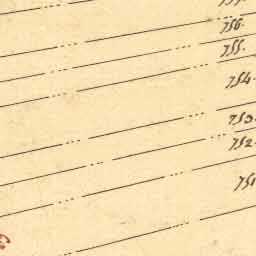 756.
755.
754.
753.
752.
751